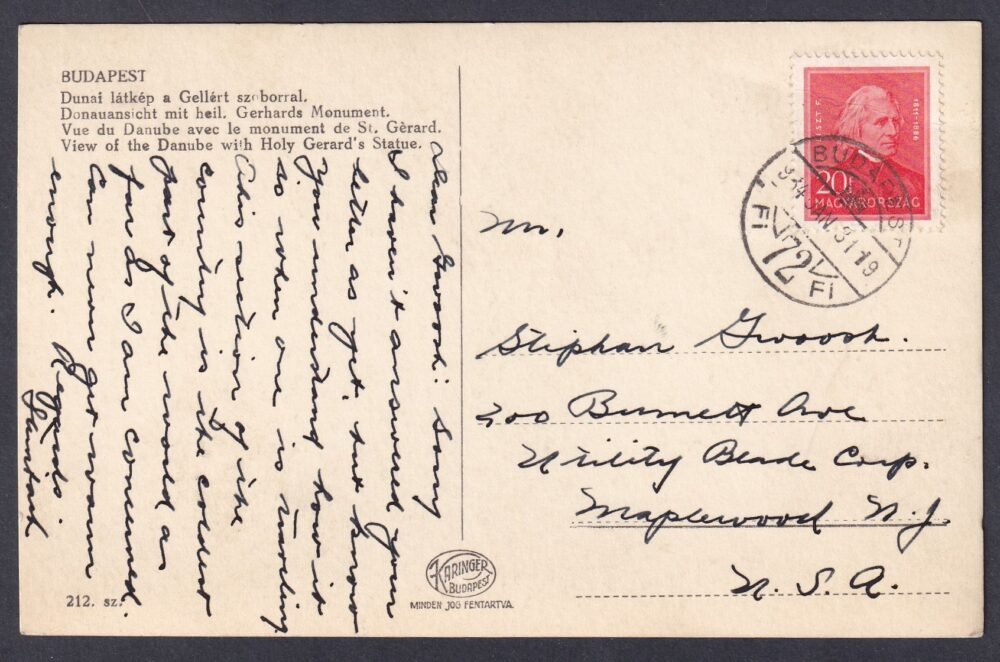 BUDAPEST
Dunai látkép a Gellért szoborral.
Donauansicht mit heil. Gerhards Monument.
Vue du Danube avec le monument de St. Gèrard.
View of the Danube with Holy Gerard's Statue.
Dear Gwoosh: Sorry
I haven't answered your
letter as yet, but know
you understand how it
is when one is traveling
This section of the
country is the coldest
part of the world as
far as I am concerned.
Can never get warm
enough. Regards
212. sz.
KARINGER
BUDAPEST
MINDEN JOG FENTARTVA.
LISZT F.
1811-1886
20 f
MAGYARORSZÁG
BUDAPEST
934 JAN 31 19
72
FI FI
Mr.
Stephan Gwoosh.
200 Burnett Ave
Utility Blade Corp.
Maplewood N.J.
U.S.A.